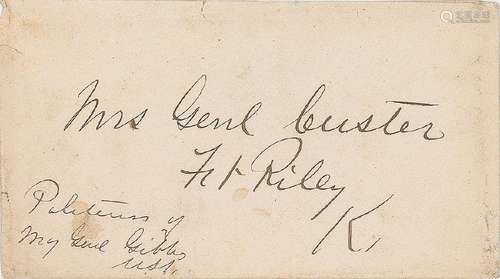 Mrs Genl Custer
Ft Riley
K.
Politeness of
Maj Genl Gibbs
USA